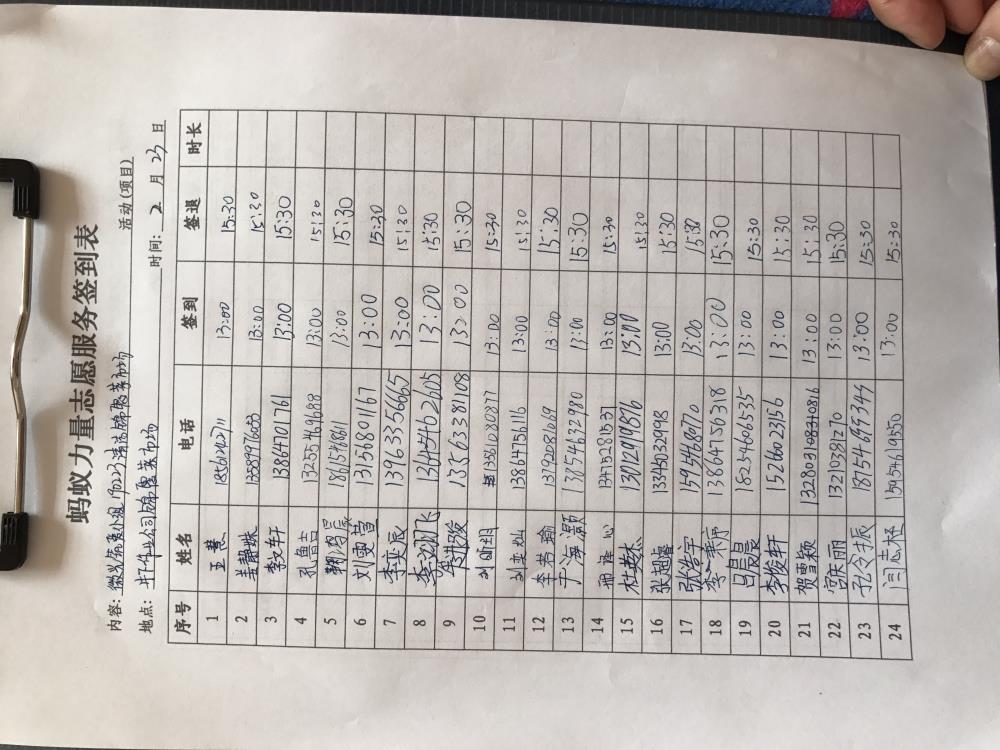 蚂蚁力量志愿服务签到表
内容: 活动(项目)
地点: 锦霞菜市场 时间: 2 月 23 日
序号 姓名 电话 签到 签退 时长
1 王慧 18561212711 13:00 15:30
2 姜静姝 13:00 15:30
3 李玟轩 13864701761 13:00 15:30
4 孔鲁吉 13255469688 13:00 15:30
5 13:00 15:30
6 刘雯萱 13156801167 13:00 15:30
7 李奕辰 13963356665 13:00 15:30
8 13645462605 13:00 15:30
9 13563381108 13:00 15:30
10 13561080877 13:00 15:30
11 刘奕灿 13864756116 13:00 15:30
12 李若瑜 13920816169 13:00 15:30
13 于海灏 13854632980 13:00 15:30
14 13475281537 13:00 15:30
15 杜英杰 13012991876 13:00 15:30
16 13345032998 13:00 15:30
17 张浩宇 15954680710 13:00 15:30
18 李秉序 13864756318 13:00 15:30
19 吕晨晨 18254606535 13:00 15:30
20 李俊轩 15266023156 13:00 15:30
21 贺雪颖 13:00 15:30
22 13210381270 13:00 15:30
23 孔令振 18754695344 13:00 15:30
24 闫志怀 15954619550 13:00 15:30